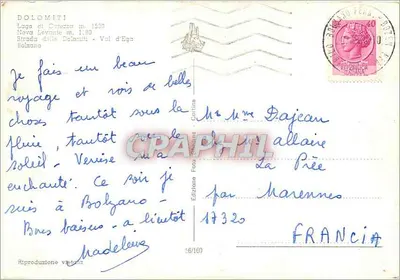 DOLOMITI
Lago di Carezza m. 1520
Nova Levante m. 1180
Strada delle Dolomiti - Val d'Ega
Bolzano
Je fais un beau
voyage et vois de belles
choses tantôt sous la
pluie, tantôt sous le
soleil - Venise m'a
enchanté. Ce soir je
suis à Bolzano -
Bons baisers - à bientôt
Madeleine
Riproduzione vietata
40
Mr Mme Dajean
allaire
La Prée
par Marennes
17320
FRANCIA
CPAPHIL